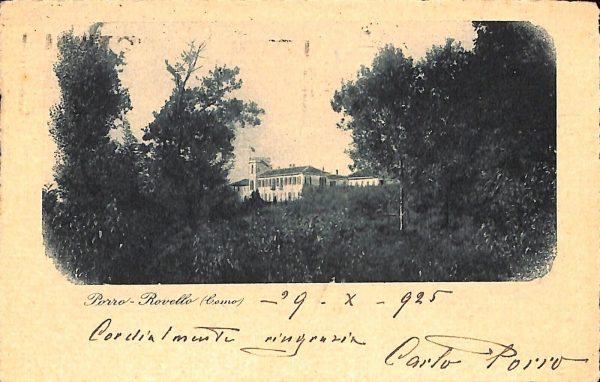 Porro - Rovello (Como) - 29 - X - 925
Cordialmente ringrazia
Carlo Porro